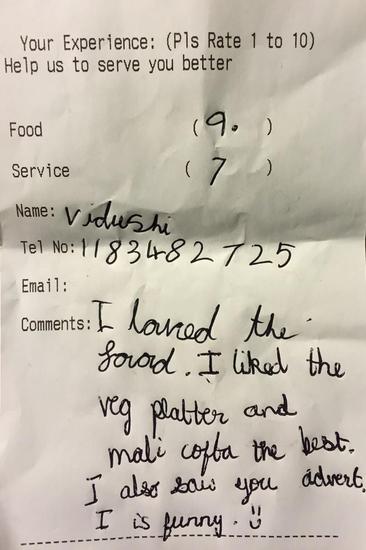 Your Experience: (Pls Rate 1 to 10)
Help us to serve you better
Food (9. )
Service ( 7 )
Name: Vidushi
Tel No: 1183482725
Email:
Comments: I loved the
food. I liked the
veg platter and
mali cofta the best.
I also saw you advert.
I is funny. ü